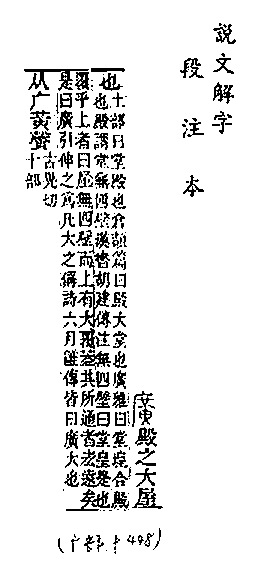 說文解字
段注本
廣殿之大屋
也土部曰堂殿也倉頡篇曰殿大堂也廣雅曰堂堭合殿
也殿謂堂無四壁漢書胡建傳注無四壁曰堂皇是也
覆乎上者曰屋無四壁而上有大覆葢其所通者宏遠矣
是曰廣引伸之爲凡大之偁詩六月雝傳皆曰廣大也
从广黃聲古晃切
十部
(广部 498)